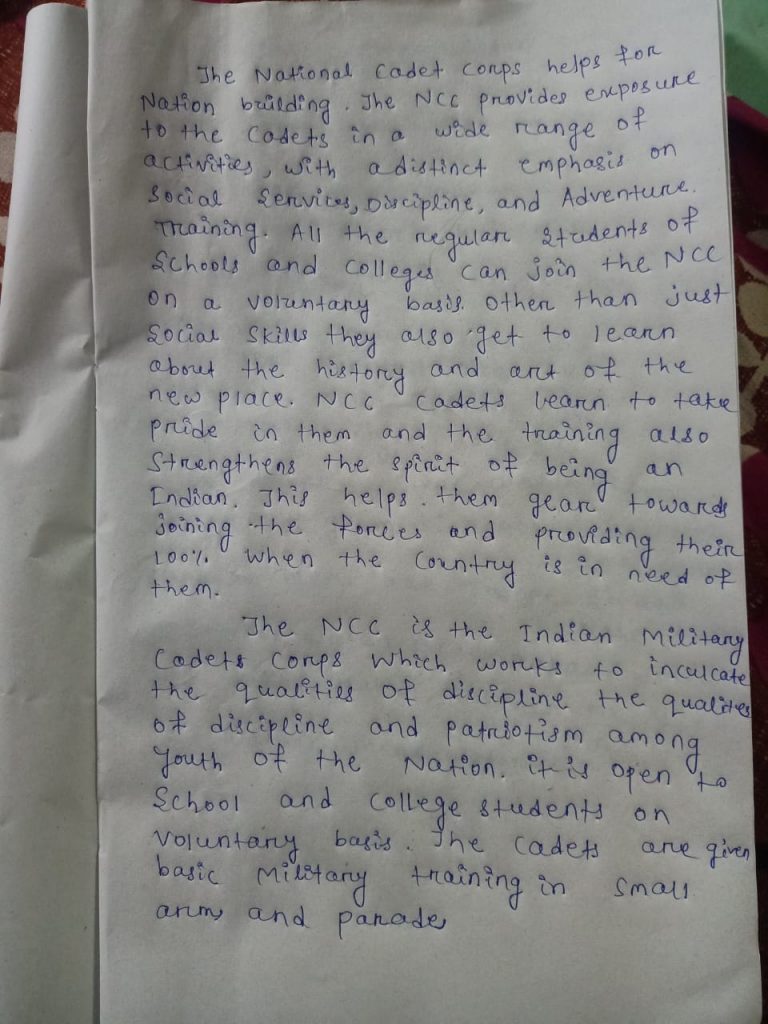 The National Cadet Corps helps for
Nation building. The NCC provides exposure
to the Cadets in a wide range of
activities, with a distinct emphasis on
Social Services, Discipline, and Adventure.
Training. All the regular Students of
Schools and colleges can join the NCC
on a voluntary basis. Other than just
Social Skills they also get to learn
about the history and art of the
new place. NCC Cadets learn to take
pride in them and the training also
Strengthens the spirit of being an
Indian. This helps. them gear towards
joining the forces and providing their
100% when the Country is in need of
them.
The NCC is the Indian Military
Cadets Corps which works to inculcate
the qualities of discipline the qualities
of discipline and patriotism among
Youth of the Nation. it is open to
School and college students on
Voluntary basis. The Cadets are given
basic Military training in small
arms and parades